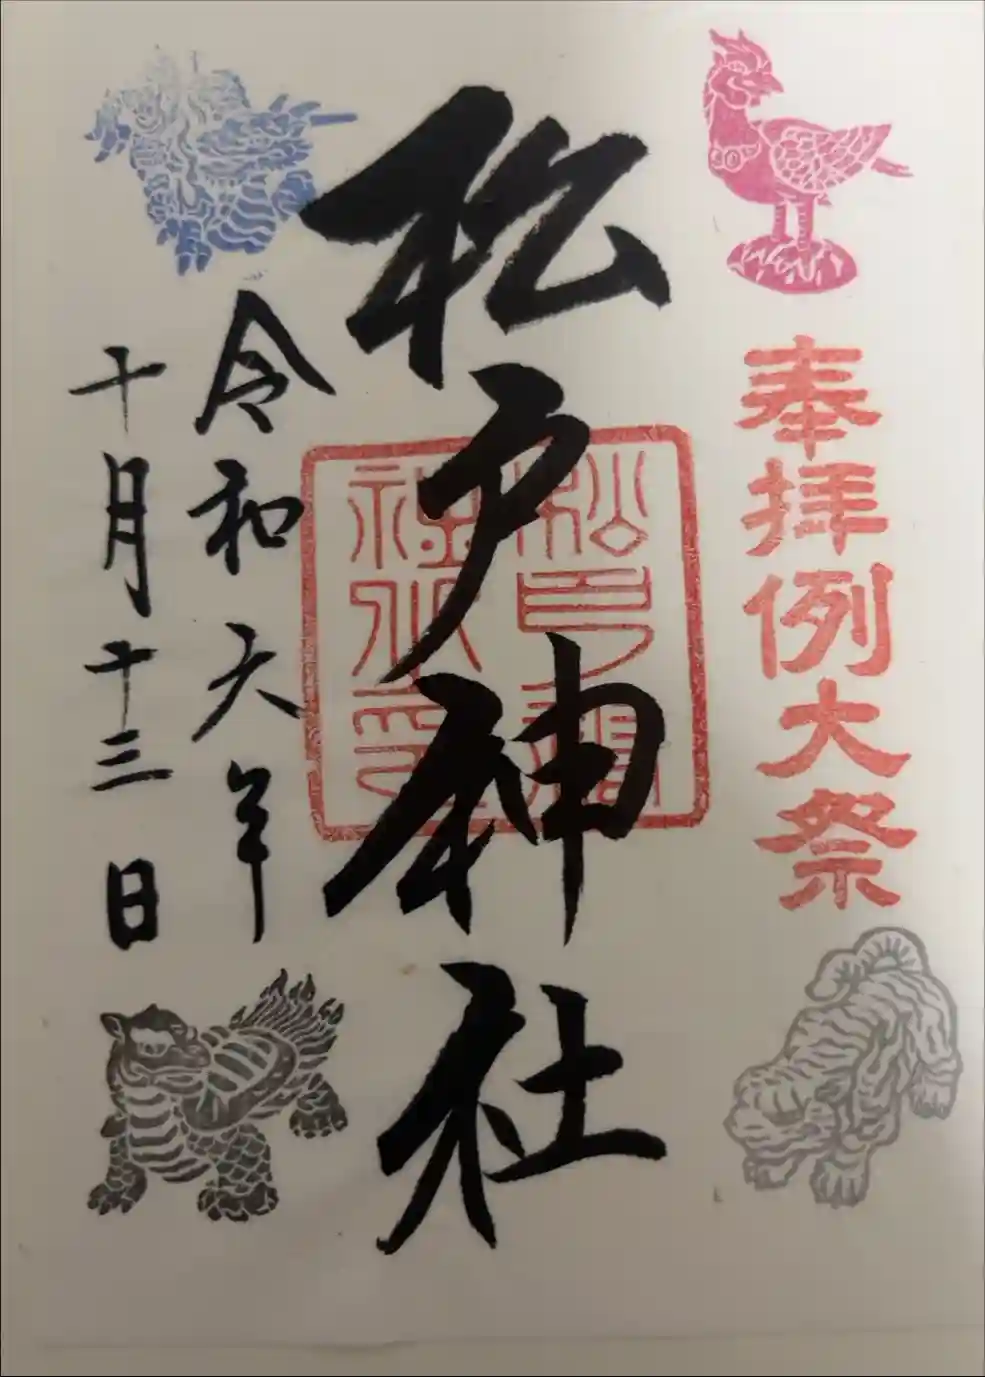 奉拝例大祭
松戸神社
令和六年
十月十三日